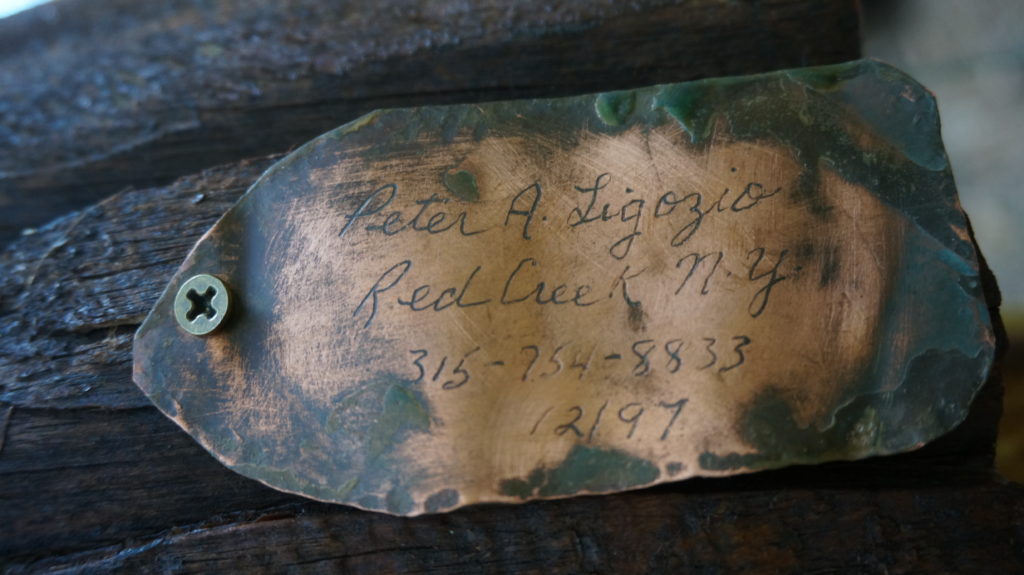 Peter A. Ligozio
Red Creek N.Y.
315-754-8833
12197